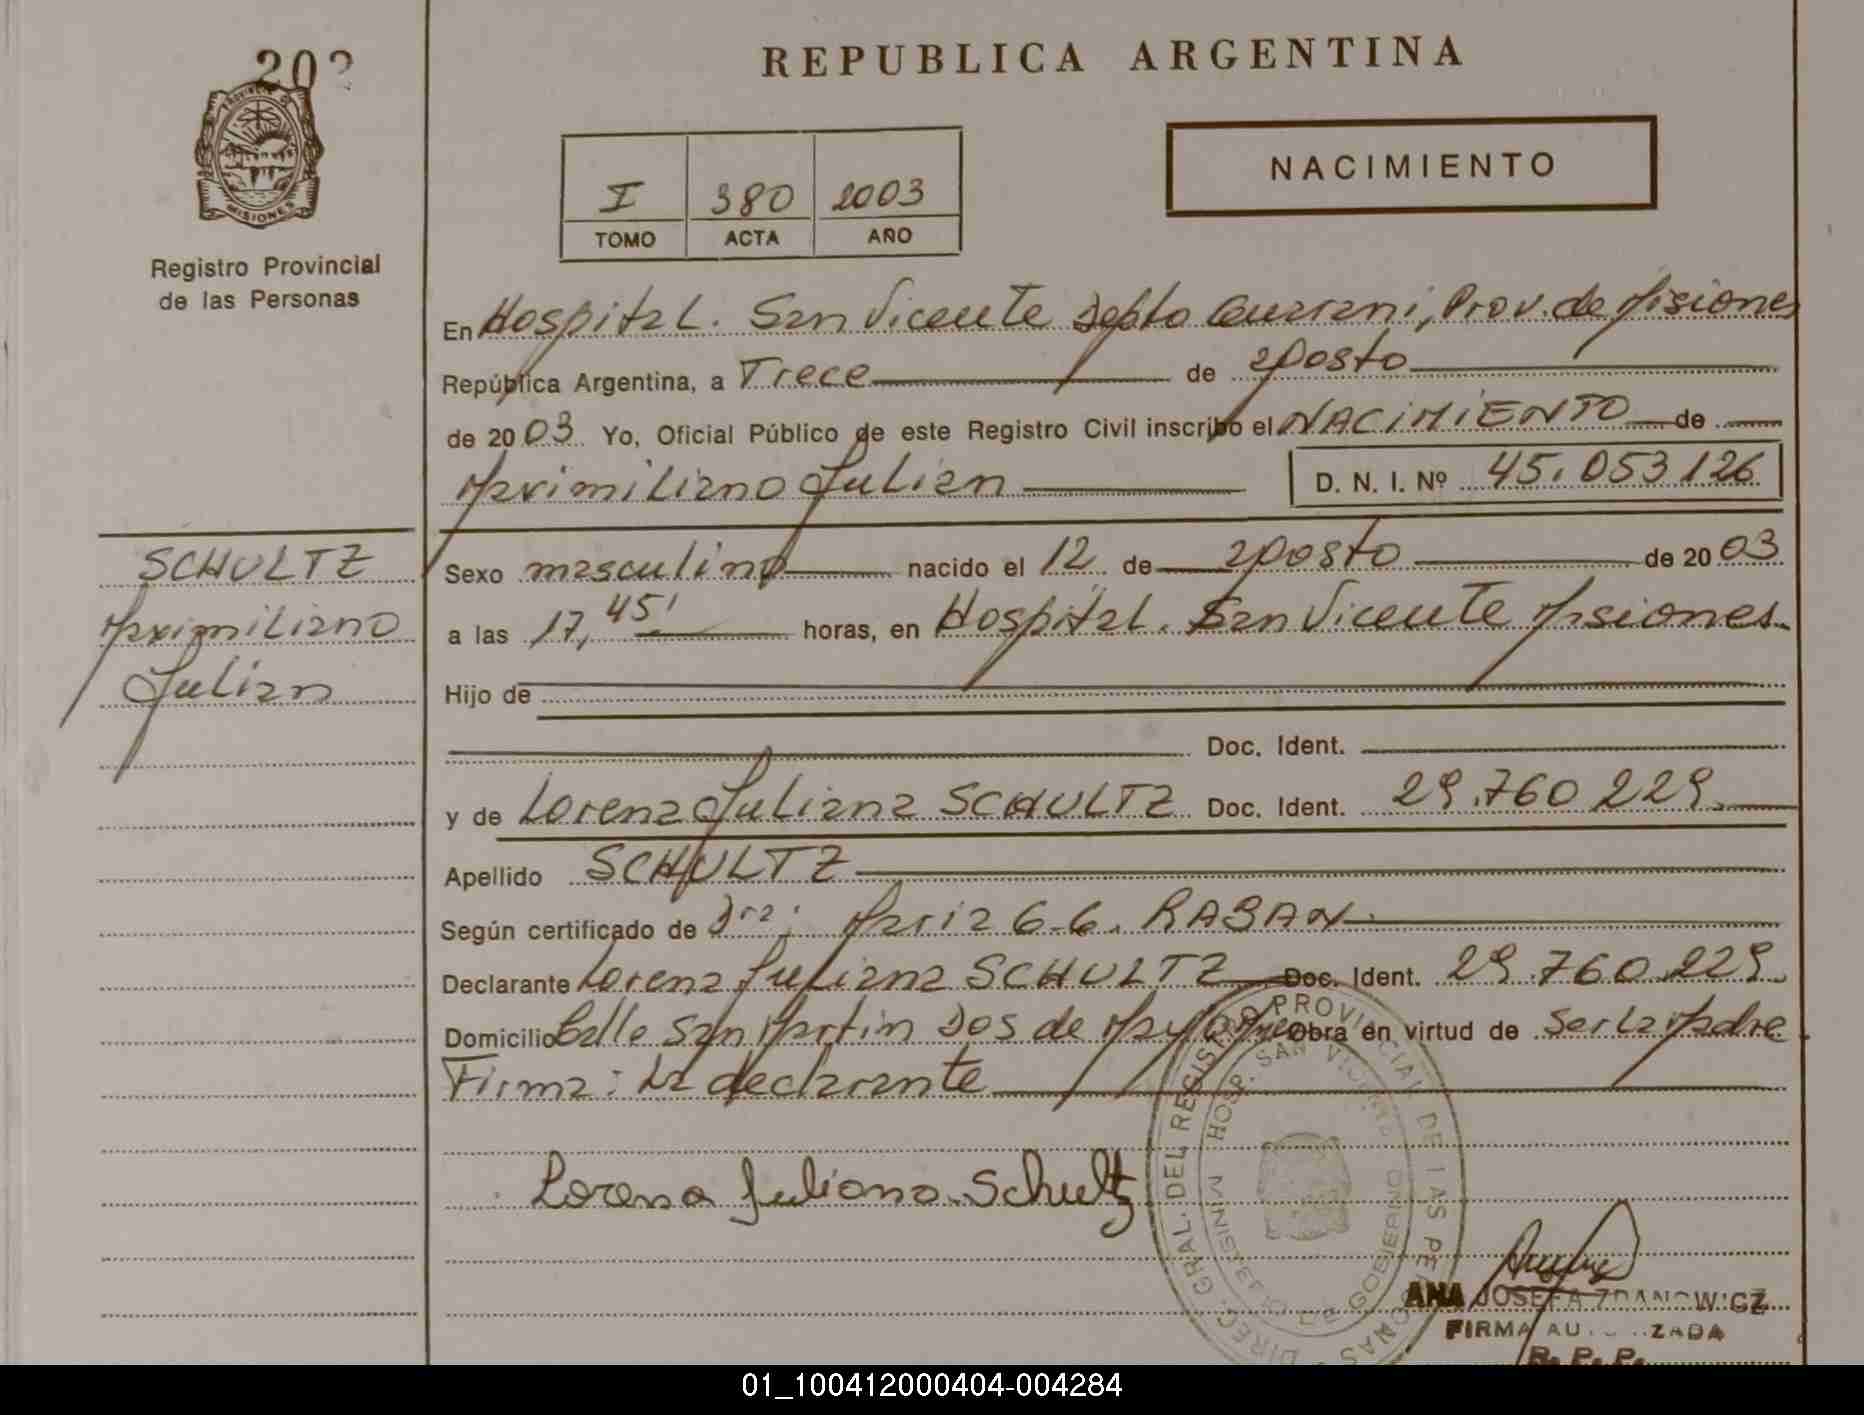 202
REPUBLICA ARGENTINA
PROVINCIA D
MISIONES
Registro Provincial
de las Personas
NACIMIENTO
I 380 2003
TOMO ACTA AÑO
En Hospital. San Vicente Depto Guarani, Prov. de Misiones
República Argentina, a Trece de agosto
de 2003 Yo, Oficial Público de este Registro Civil inscribo el NACIMIENTO de
Maximiliano Julian D. N. I. Nº 45.053.126
SCHULTZ
Maximiliano
Julian
Sexo masculino nacido el 12 de agosto de 2003
a las 17,45' horas, en Hospital. San Vicente Misiones
Hijo de
Doc. Ident.
y de Lorena Juliana SCHULTZ Doc. Ident. 29.760.229
Apellido SCHULTZ
Según certificado de Dra: Maria G.G. RABAN
Declarante Lorena Juliana SCHULTZ Doc. Ident. 29.760.229
Domicilio Calle San Martin Dos de Mayo Mnes Obra en virtud de ser la Madre
Firma: La declarante
Lorena Juliana Schultz
DIREC. GRAL. DEL REGISTRO PROVINCIAL DE LAS PERSONAS
HOSP. SAN VICENTE
MINISTERIO DE GOBIERNO
ANA JOSEFA ZDANOWICZ
FIRMA AUTORIZADA
R. P. P.
01_100412000404-004284